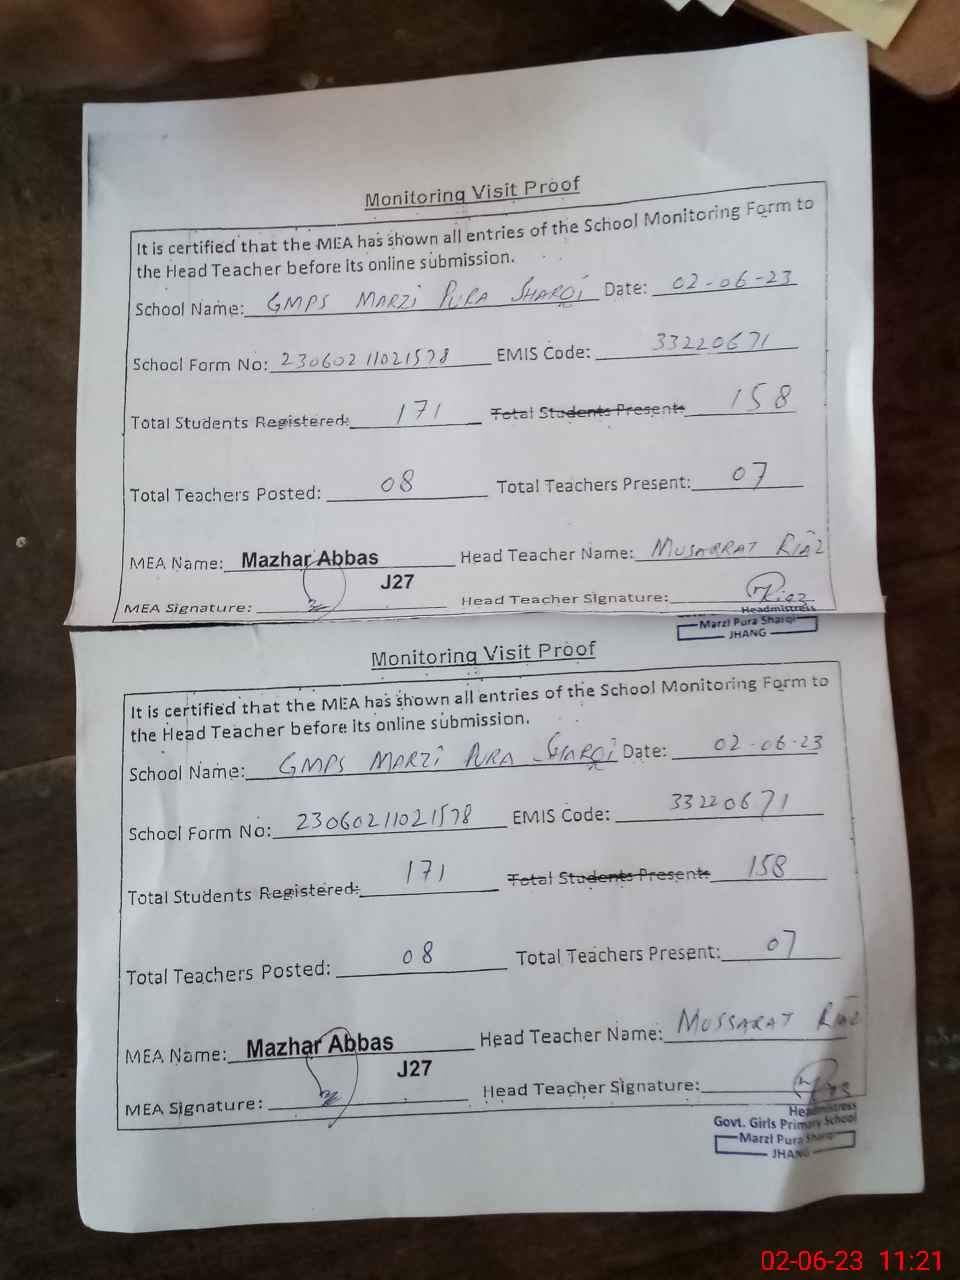 Monitoring Visit Proof
It is certified that the MEA has shown all entries of the School Monitoring Form to
the Head Teacher before its online submission.
School Name: GMPS MARZI PURA SHARQI Date: 02-06-23
School Form No: 23060211021578 EMIS Code: 33220671
Total Students Registered: 171 Total Students Present: 158
Total Teachers Posted: 08 Total Teachers Present: 07
MEA Name: Mazhar Abbas Head Teacher Name: MUSARRAT RIAZ
J27
MEA Signature: Head Teacher Signature: Riaz
Headmistress
Marzi Pura Sharqi
JHANG
Monitoring Visit Proof
It is certified that the MEA has shown all entries of the School Monitoring Form to
the Head Teacher before its online submission.
School Name: GMPS MARZI PURA SHARQI Date: 02-06-23
School Form No: 23060211021578 EMIS Code: 33220671
Total Students Registered: 171 Total Students Present: 158
Total Teachers Posted: 08 Total Teachers Present: 07
MEA Name: Mazhar Abbas Head Teacher Name: MUSSARAT RIAZ
J27
MEA Signature: Head Teacher Signature:
Headmistress
Govt. Girls Primary School
Marzi Pura Sharqi
JHANG
02-06-23 11:21